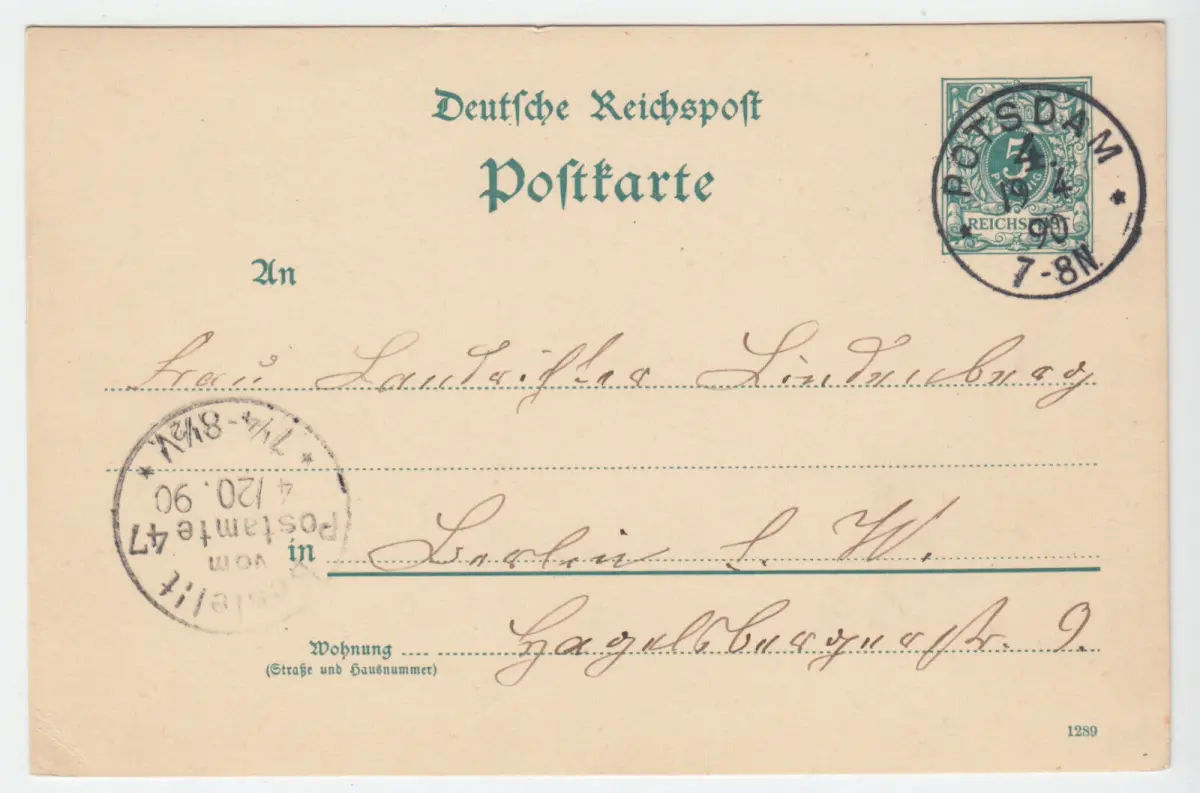 Deutsche Reichspost
Postkarte
POTSDAM
4.
19 4
90
7-8N.
5
PFENNIG
REICHSPOST
An
Frau Landrichter Lindenberg
in Berlin S. W.
Wohnung Hagelsbergerstr. 9.
(Straße und Hausnummer)
Bestellt
vom
Postamte 47
4/20. 90
7¼-8½V.
1289